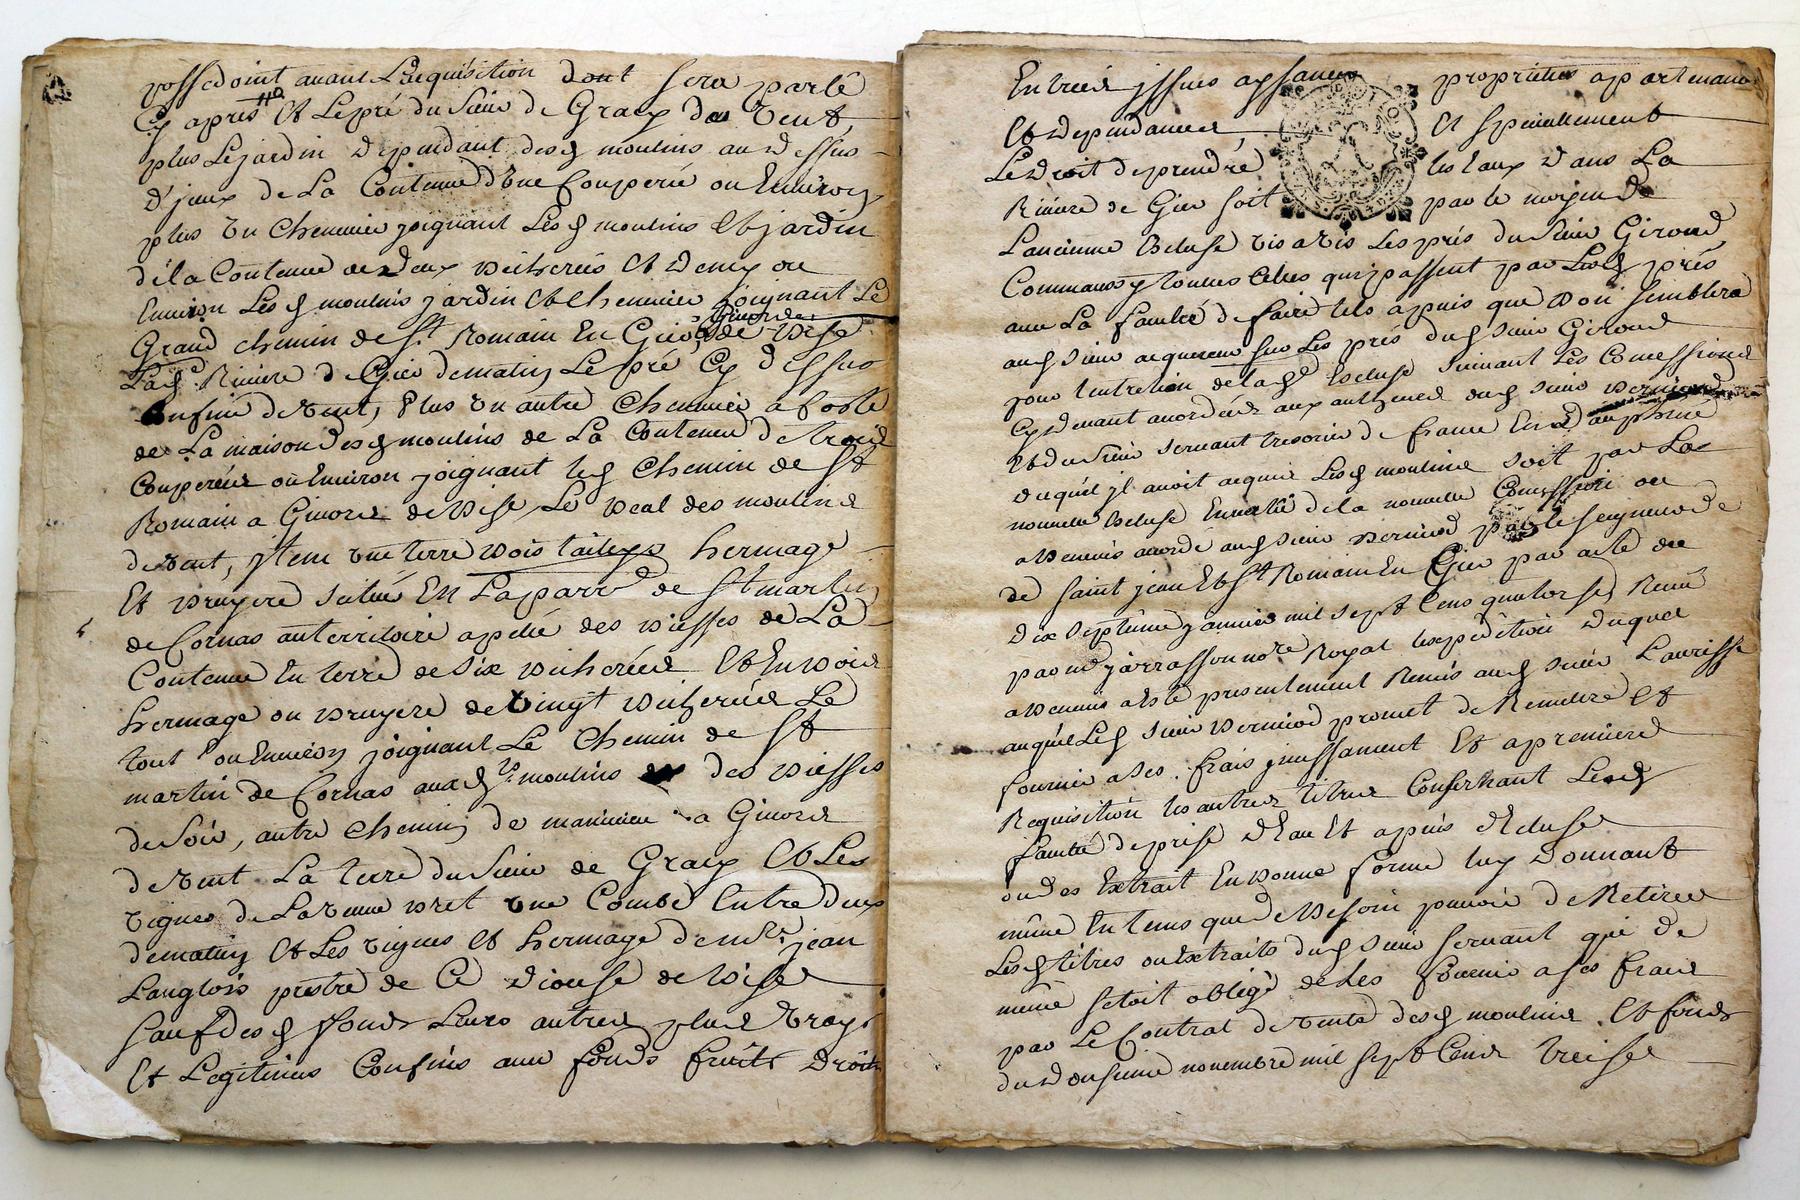 possedoint auant Lacquisition dont sera parlé
Cy apres Et Le pré du Sieur de Graix du Vent
plus Le jardin dependant desd moulins au dessus
d'jceux de La Contenue d'Vne Couperée ou Enuiron
plus Vn Chenevier joignant Lesd moulins Et jardin
de la Contenue de deux bicherées Et demy ou
Enuiron Lesd moulins jardin Et Chenevier joignant Le
Grand chemin de St Romain En Gier a Giuords de Bise
Lad Riuiere de Gier de matin Le pré Cy dessus
Confiné de Vent, Plus Vn autre Chenevier a Costé
de La maison desd moulins de La Contenue de trois
Couperées ou Enuiron joignant led Chemin de St
Romain a Giuors de Bise, Le Beal des moulins
de Vent, jtem Vne terre Bois tailles hermage
Et Bruyere situé En La parre de St martin
de Cornas au territoire apellé des Biesses de La
Contenue En terre de Six bicherées Et En Bois
hermage ou Bruyere de Vingt Bicherées Le
tout ou Enuiron joignant Le Chemin de St
martin de Cornas auxd moulins des Biesses
de Soir, autre Chemin de a Giuors
de Vent La terre du Sieur de Graix Et Les
Vignes de La Venue Bret Vne Combe Entre deux
de matin Et Les Vignes Et hermage de mre jean
Langlois prestre de Ce Diocese de Bise
Sauf desd fonds Leurs autres plus Vrays
Et Legitimes Confins aux fonds fruits droits
Entrées jssues aysances proprietés apartenances
Et dependances Et Specialement
Le droit de prendre les Eaux dans La
Riuiere de Gier soit par le moyen de
Lancienne Ecluse Vis a Vis Les prés du Sieur Giroud
Comme aussy toutes Celles qui passent par Lesd prés
auec La faculté de faire tels apuis que Bon semblera
aud Sieur acquereur sur Les prés dud Sieur Giroud
pour lentretien de lad Ecluse Suiuant Les Concessions
Cy deuant accordées aux autheurs dud Sieur Bernied
Et du Sieur seruant tresorier de france En dauphiné
duquel jl auoit acquis Lesd moulins soit par La
nouuelle Ecluse En vertu de la nouuelle Concession ou
abenevis accordé aud Sieur Bernied par le Seigneur de
de Saint jean Et St Romain En Gier par acte du
Dix Septieme januier mil Sept Cens quatorse, Receu
par me jarrasson nore Royal lexpedition duquel
abenevis a Eté presentement Remis aud Sieur Laurisse
auquel Led Sieur Bernied promet de Remettre Et
fournir a Ses frais jncessament Et a premiere
Requisition les autres titres Conserhant Lesd
faculté de prise dEau Et apuis dEcluse
ou des Extrait En Bonne forme luy Donnant
même En tems que de Besoin pouuoir de Retirer
Lesd titres ou Extraits dud Sieur Seruant qui de
même setoit obligé de Les fournir a Ses frais
par Le Contrat de Vente desd moulins Et fonds
du dousieme nouembre mil Sept Cens treise